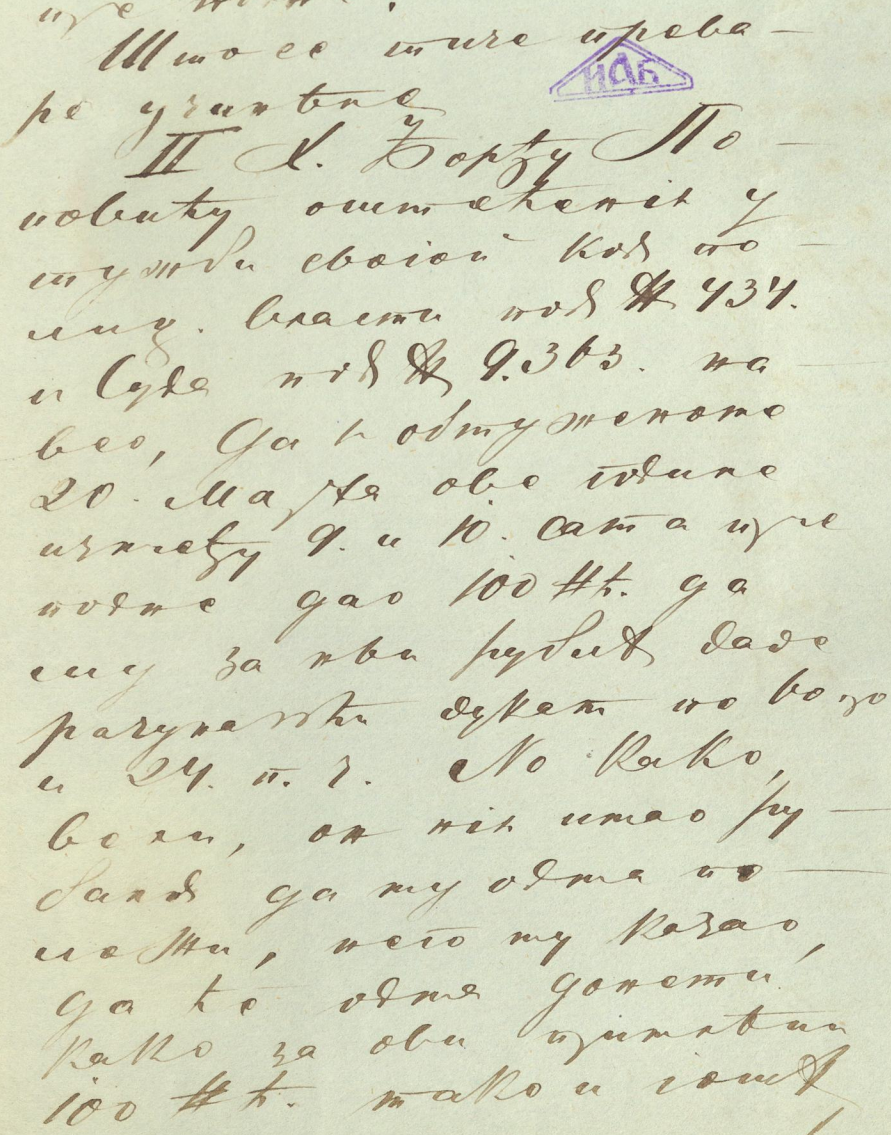 Што се тиче прева-
ре учинѣне
II Х. Ђорђу По-
повићу оштећеніѣ у
тужби своіой кодъ по-
лиц. власти подъ № 434.
и Суда подъ № 9.363. на
вео, да ѣ обтуженоме
20. Маја ове године
између 9. и 10. сата пре
подне дао 100 #ћ. да
му за њи рубаља даде
рачунаюћи дукат по
и 24. п. ч. Но како,
вели, он ніѣ имао ру-
баля да му одма по-
ложи, него му казао,
да ће одма донети
како за ови примлѣни
100 #ћ. тако и іошъ
НАБ